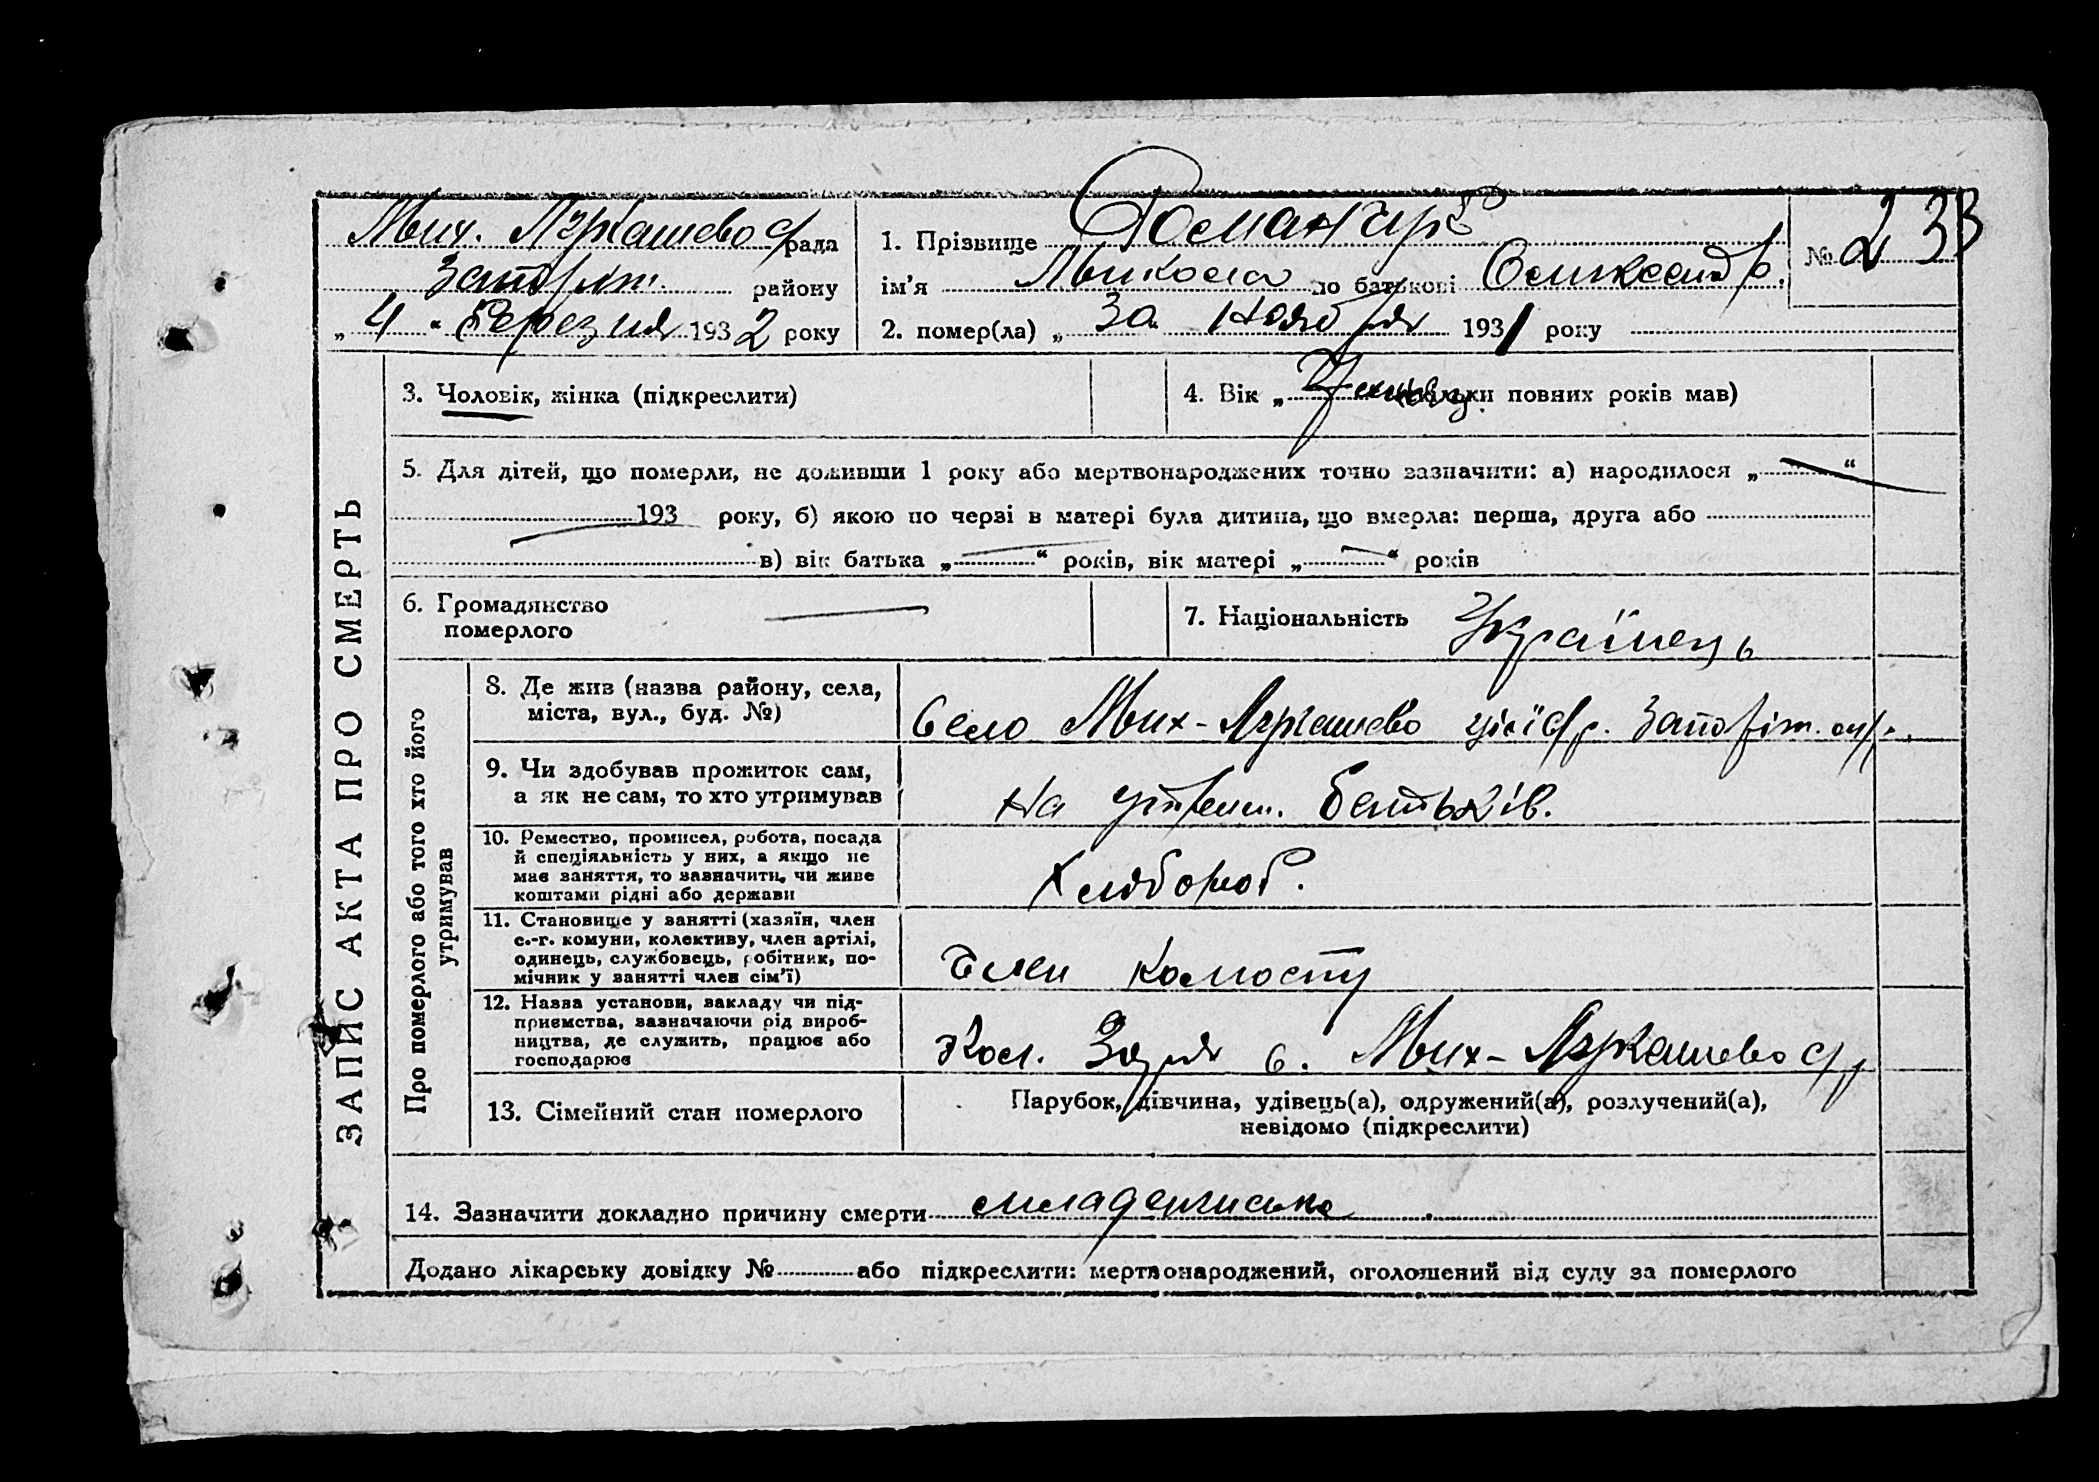 Мих. Лукашево с/рада
Запоріж. району
„4“ Березня 1932 року
1. Прізвище
ім'я Микола по батькові Олександр.
2. помер(ла) „30 Ноября 1931 року
№ 233
ЗАПИС АКТА ПРО СМЕРТЬ
3. Чоловік, жінка (підкреслити)
4. Вік „ (скільки повних років мав)
5. Для дітей, що померли, не доживши 1 року або мертвонароджених точно зазначити: а) народилося „ “
193 року, б) якою по черзі в матері була дитина, що вмерла: перша, друга або
в) вік батька „ “ років, вік матері „ “ років
6. Громадянство
померлого
7. Національність Українець
Про померлого або того хто його
утримував
8. Де жив (назва району, села,
міста, вул., буд. №)
Село Мих-Лукашево цієї с/р.
9. Чи здобував прожиток сам,
а як не сам, то хто утримував
На утрим. батьків.
10. Ремество, промисел, робота, посада
й спеціяльність у них, а якщо не
має заняття, то зазначити, чи живе
коштами рідні або держави
Хлібороб.
11. Становище у занятті (хазяїн, член
с.-г. комуни, колективу, член артілі,
одинець, службовець, робітник, по-
мічник у занятті член сім'ї)
Член колгоспу
12. Назва установи, закладу чи під-
приємства, зазначаючи рід вироб-
ництва, де служить, працює або
господарює
Кол. Зоря с. Мих-Лукашево с/р
13. Сімейний стан померлого
Парубок, дівчина, удівець(а), одружений(а), розлучений(а),
невідомо (підкреслити)
14. Зазначити докладно причину смерти младенчиське
Додано лікарську довідку № або підкреслити: мертвонароджений, оголошений від суду за померлого